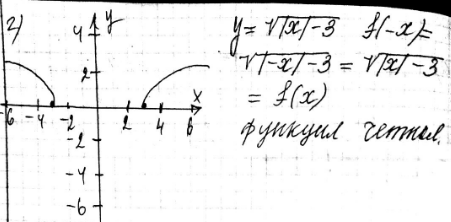 2)
y
4
2
x
-6 -4 -2 2 4 6
-2
-4
-6
y = √|x|-3 f(-x)=
√|-x|-3 = √|x|-3
= f(x)
функция четная.